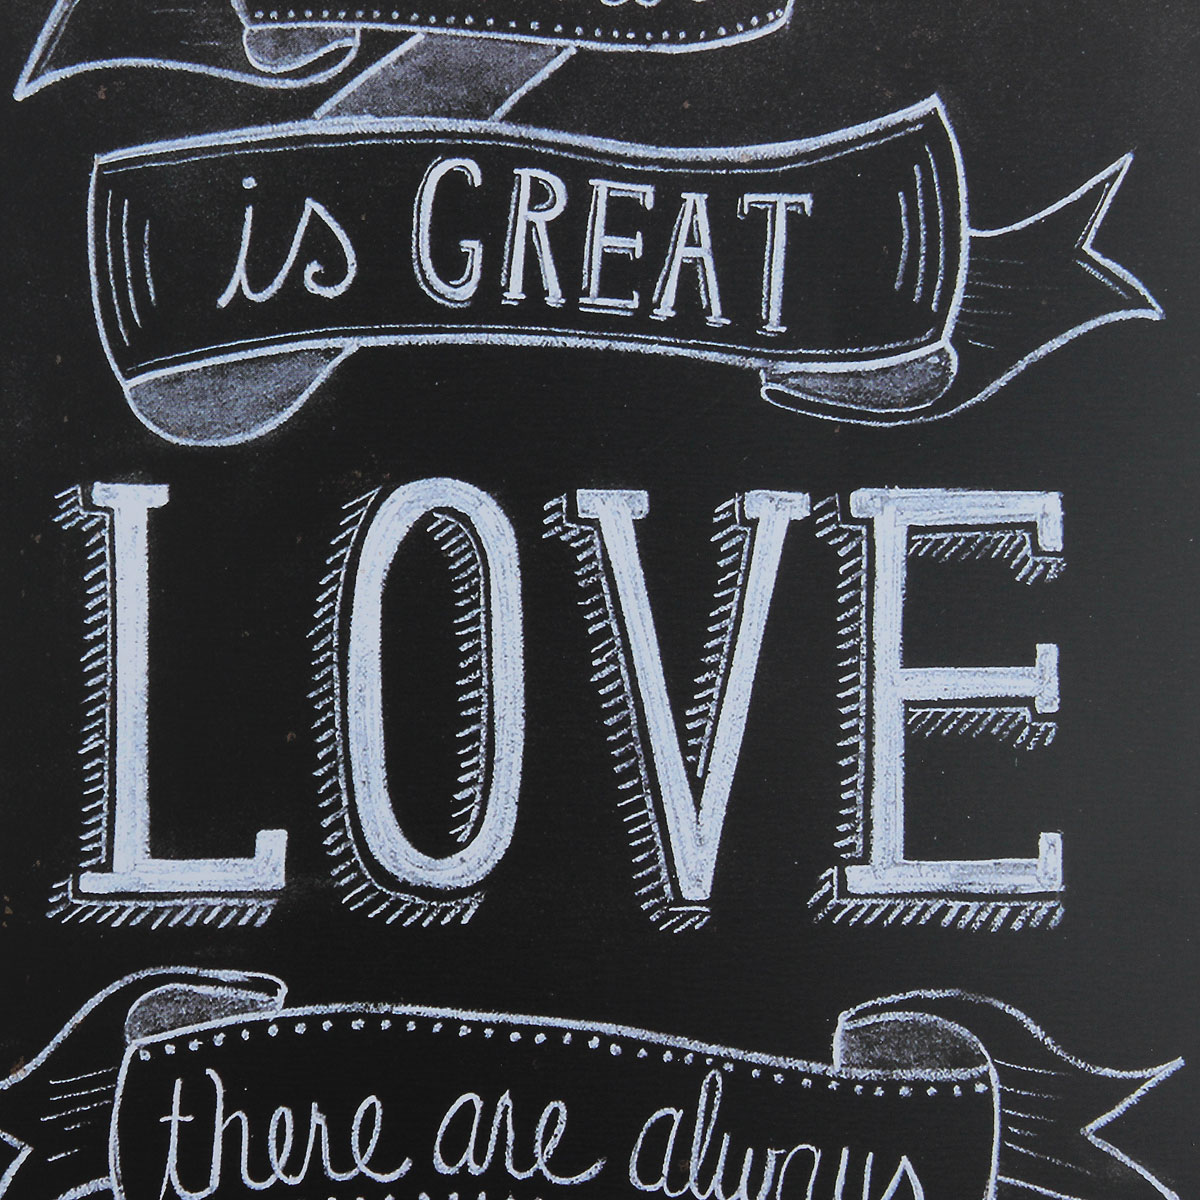 is GREAT
LOVE
there are always